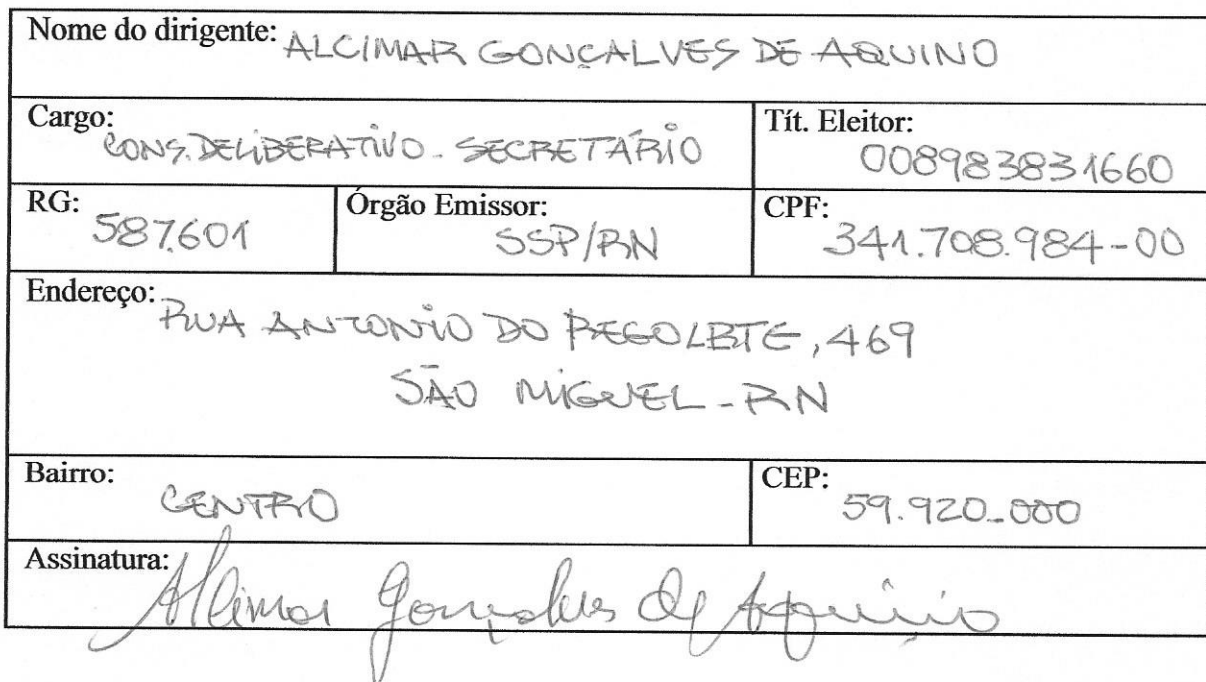 Nome do dirigente: ALCIMAR GONÇALVES DE AQUINO
Cargo: CONS. DELIBERATIVO - SECRETÁRIO
Tít. Eleitor: 008983831660
RG: 587.601
Órgão Emissor: SSP/RN
CPF: 341.708.984-00
Endereço: RUA ANTONIO DO REGO LEITE, 469
SÃO MIGUEL - RN
Bairro: CENTRO
CEP: 59.920-000
Assinatura: Alcimar Gonçalves de Aquino